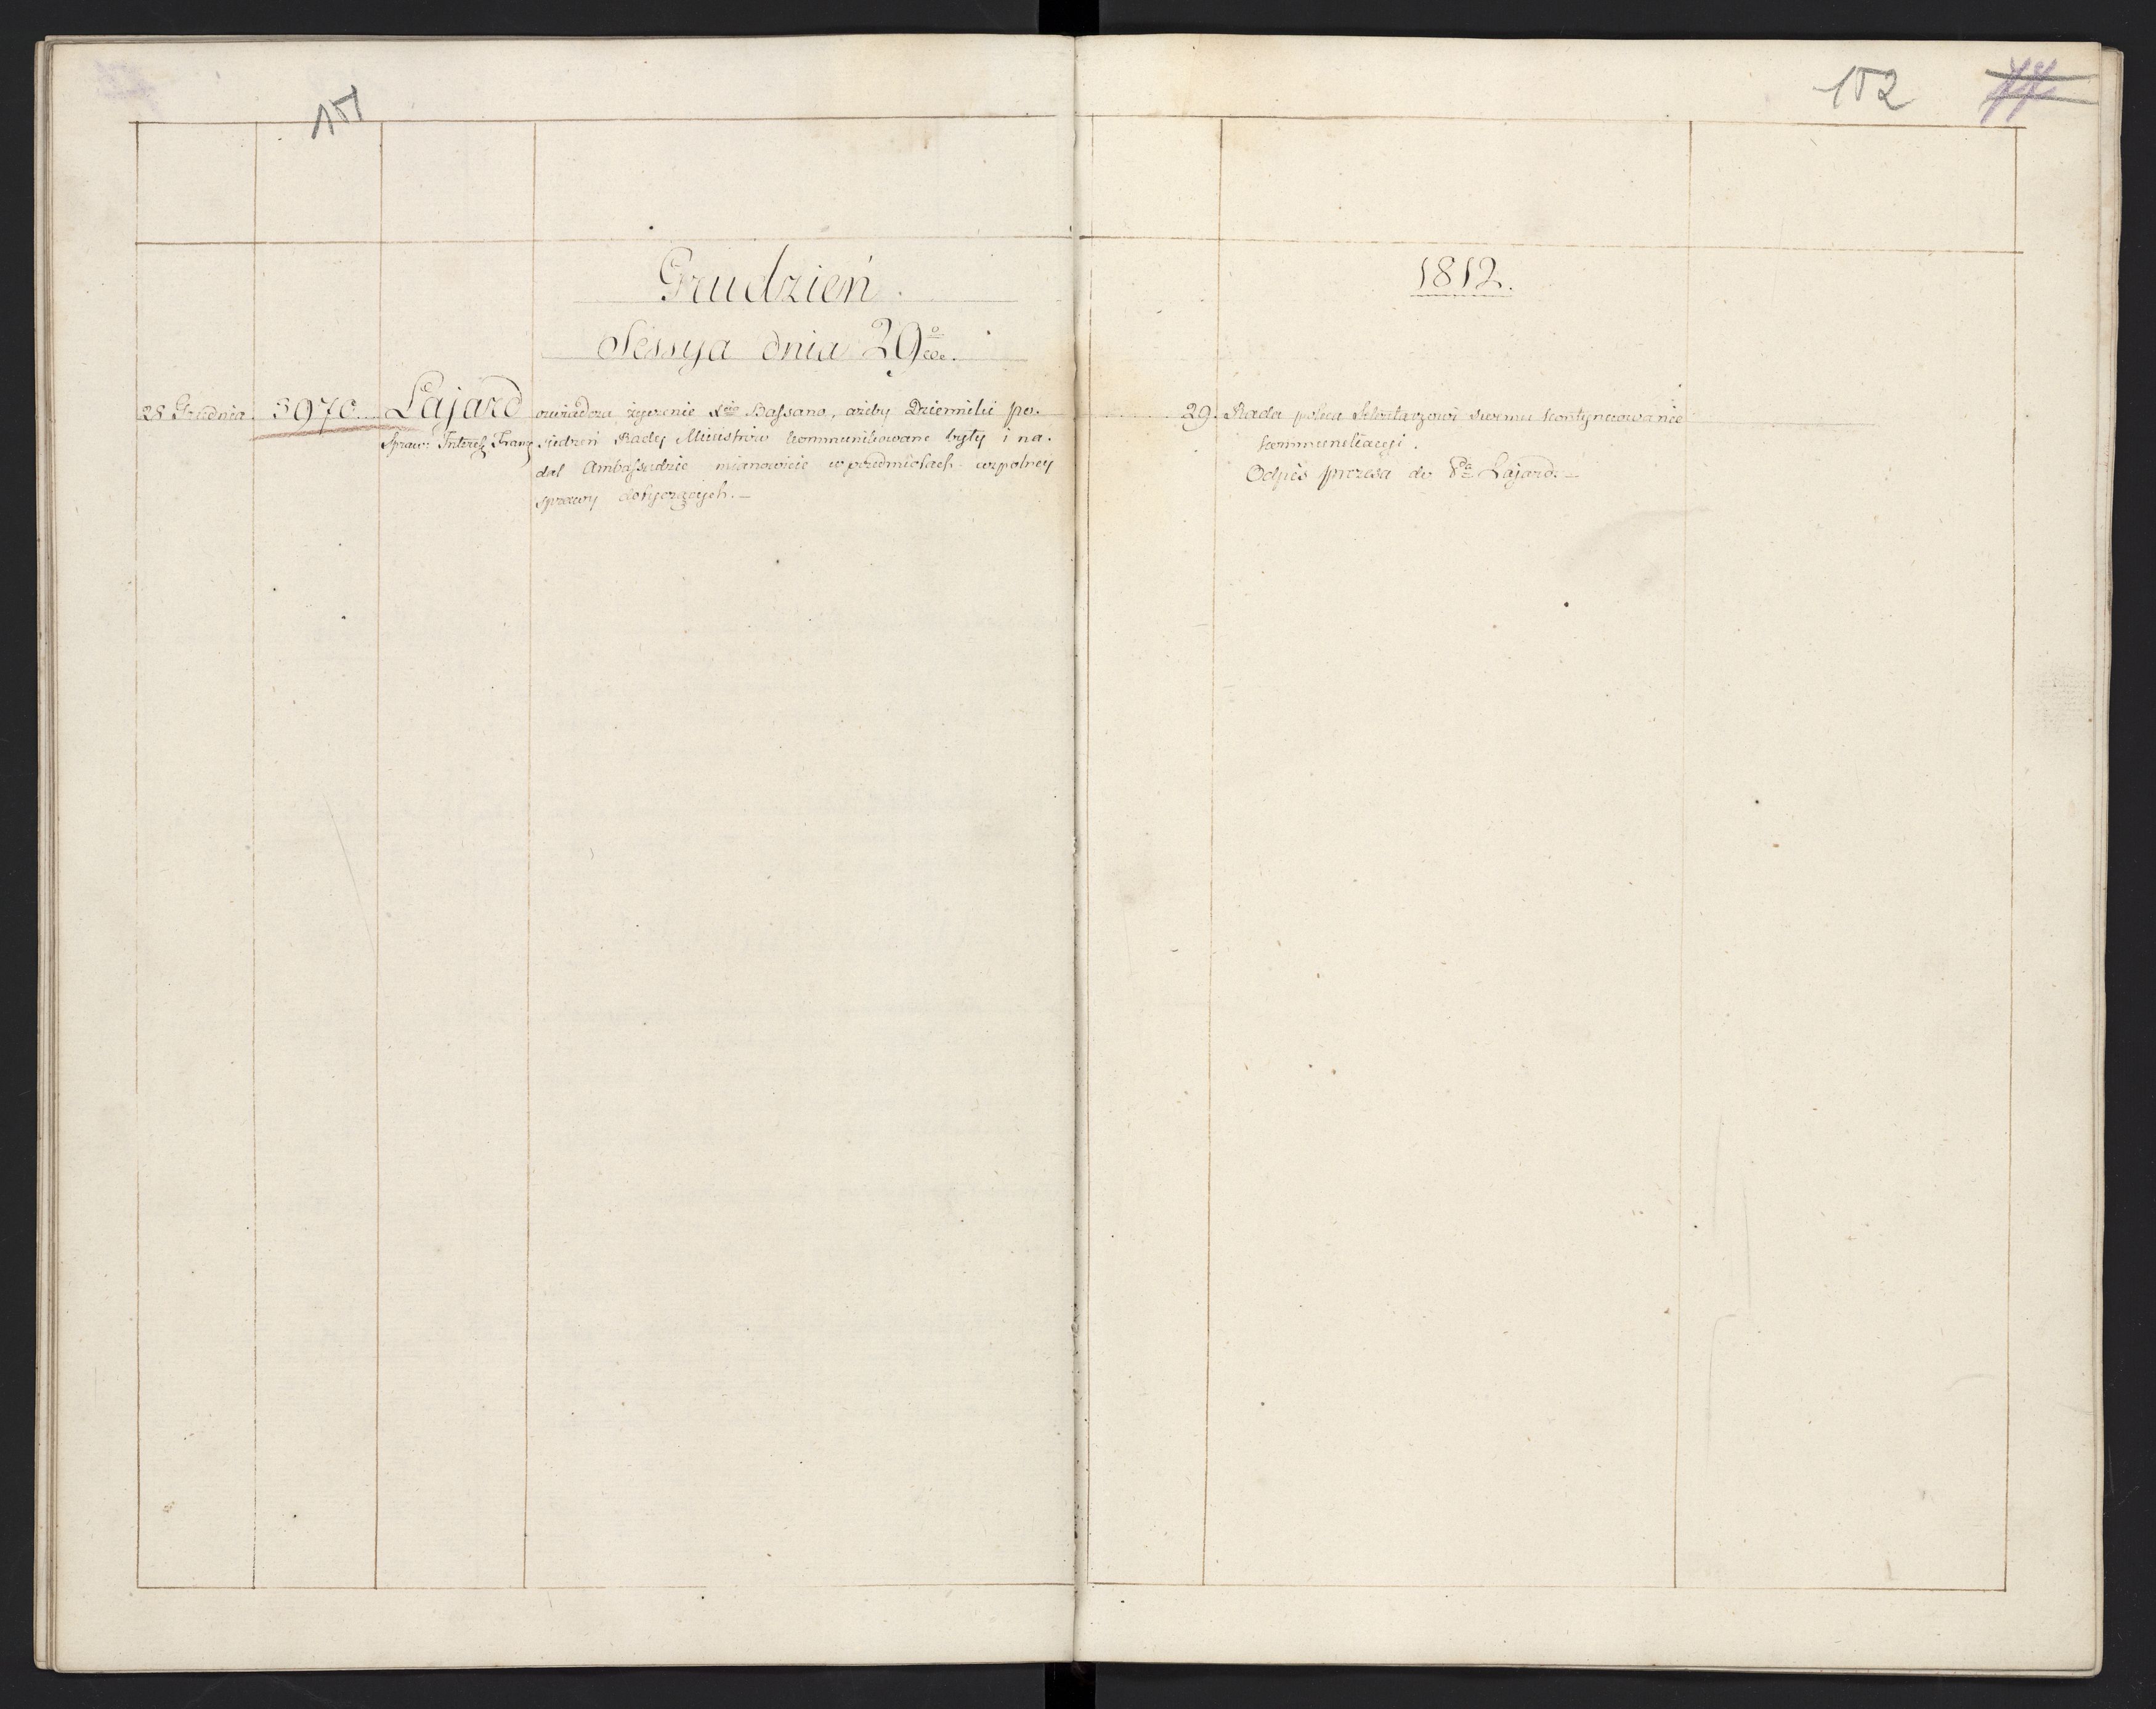 151
152
Grudzień.
1812.
Sessya dnia 29o
28 Grudnia. 3970. Lajard oswiadcza życzenie Xcia Bassano, ażeby Dzienniki po-
Spraw: Interess: Franz: siedzeń Rady Ministrów kommunikowane były i na-
dal Ambassadzie mianowicie w przedmiotach wspolney
sprawy dotyczących. –
29. Rada poleca Sekretarzowi swemu kontynuowanie
kommunikacyi.
Odpis prezesa do Pa Lajard. –